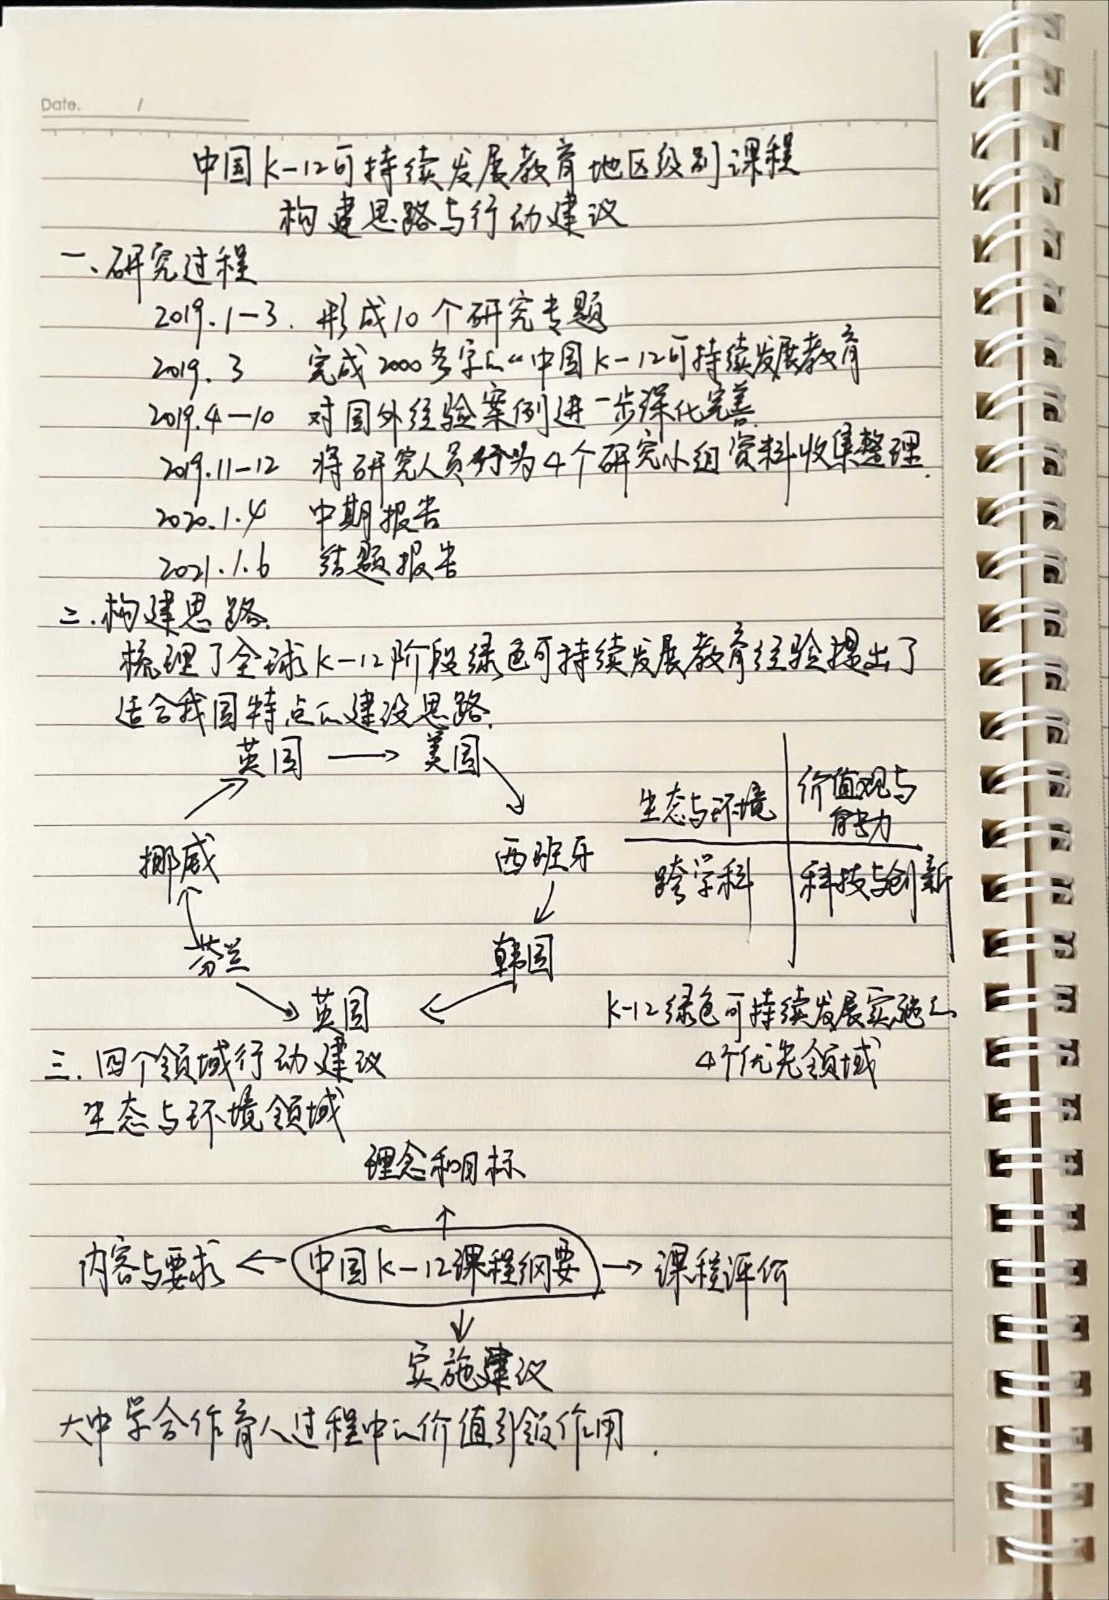 Date. /
中国K-12可持续发展教育地区级别课程
构建思路与行动建议
一、研究过程
2019.1-3. 形成10个研究专题
2019.3 完成2000多字的“中国K-12可持续发展教育
2019.4-10 对国外经验案例进一步深化完善
2019.11-12 将研究人员分为4个研究小组资料收集整理.
2020.1.4 中期报告
2021.1.6 结题报告
二.构建思路.
梳理了全球K-12阶段绿色可持续发展教育经验提出了
适合我国特点的建设思路.
英国 → 美国
生态与环境 价值观与能力
挪威 西班牙
跨学科 科技与创新
芬兰 韩国
英国
K-12绿色可持续发展实施的
4个优先领域
三.四个领域行动建议
生态与环境领域
理念和目标
内容与要求 ← 中国K-12课程纲要 → 课程评价
实施建议
大中学合作育人过程中的价值引领作用.